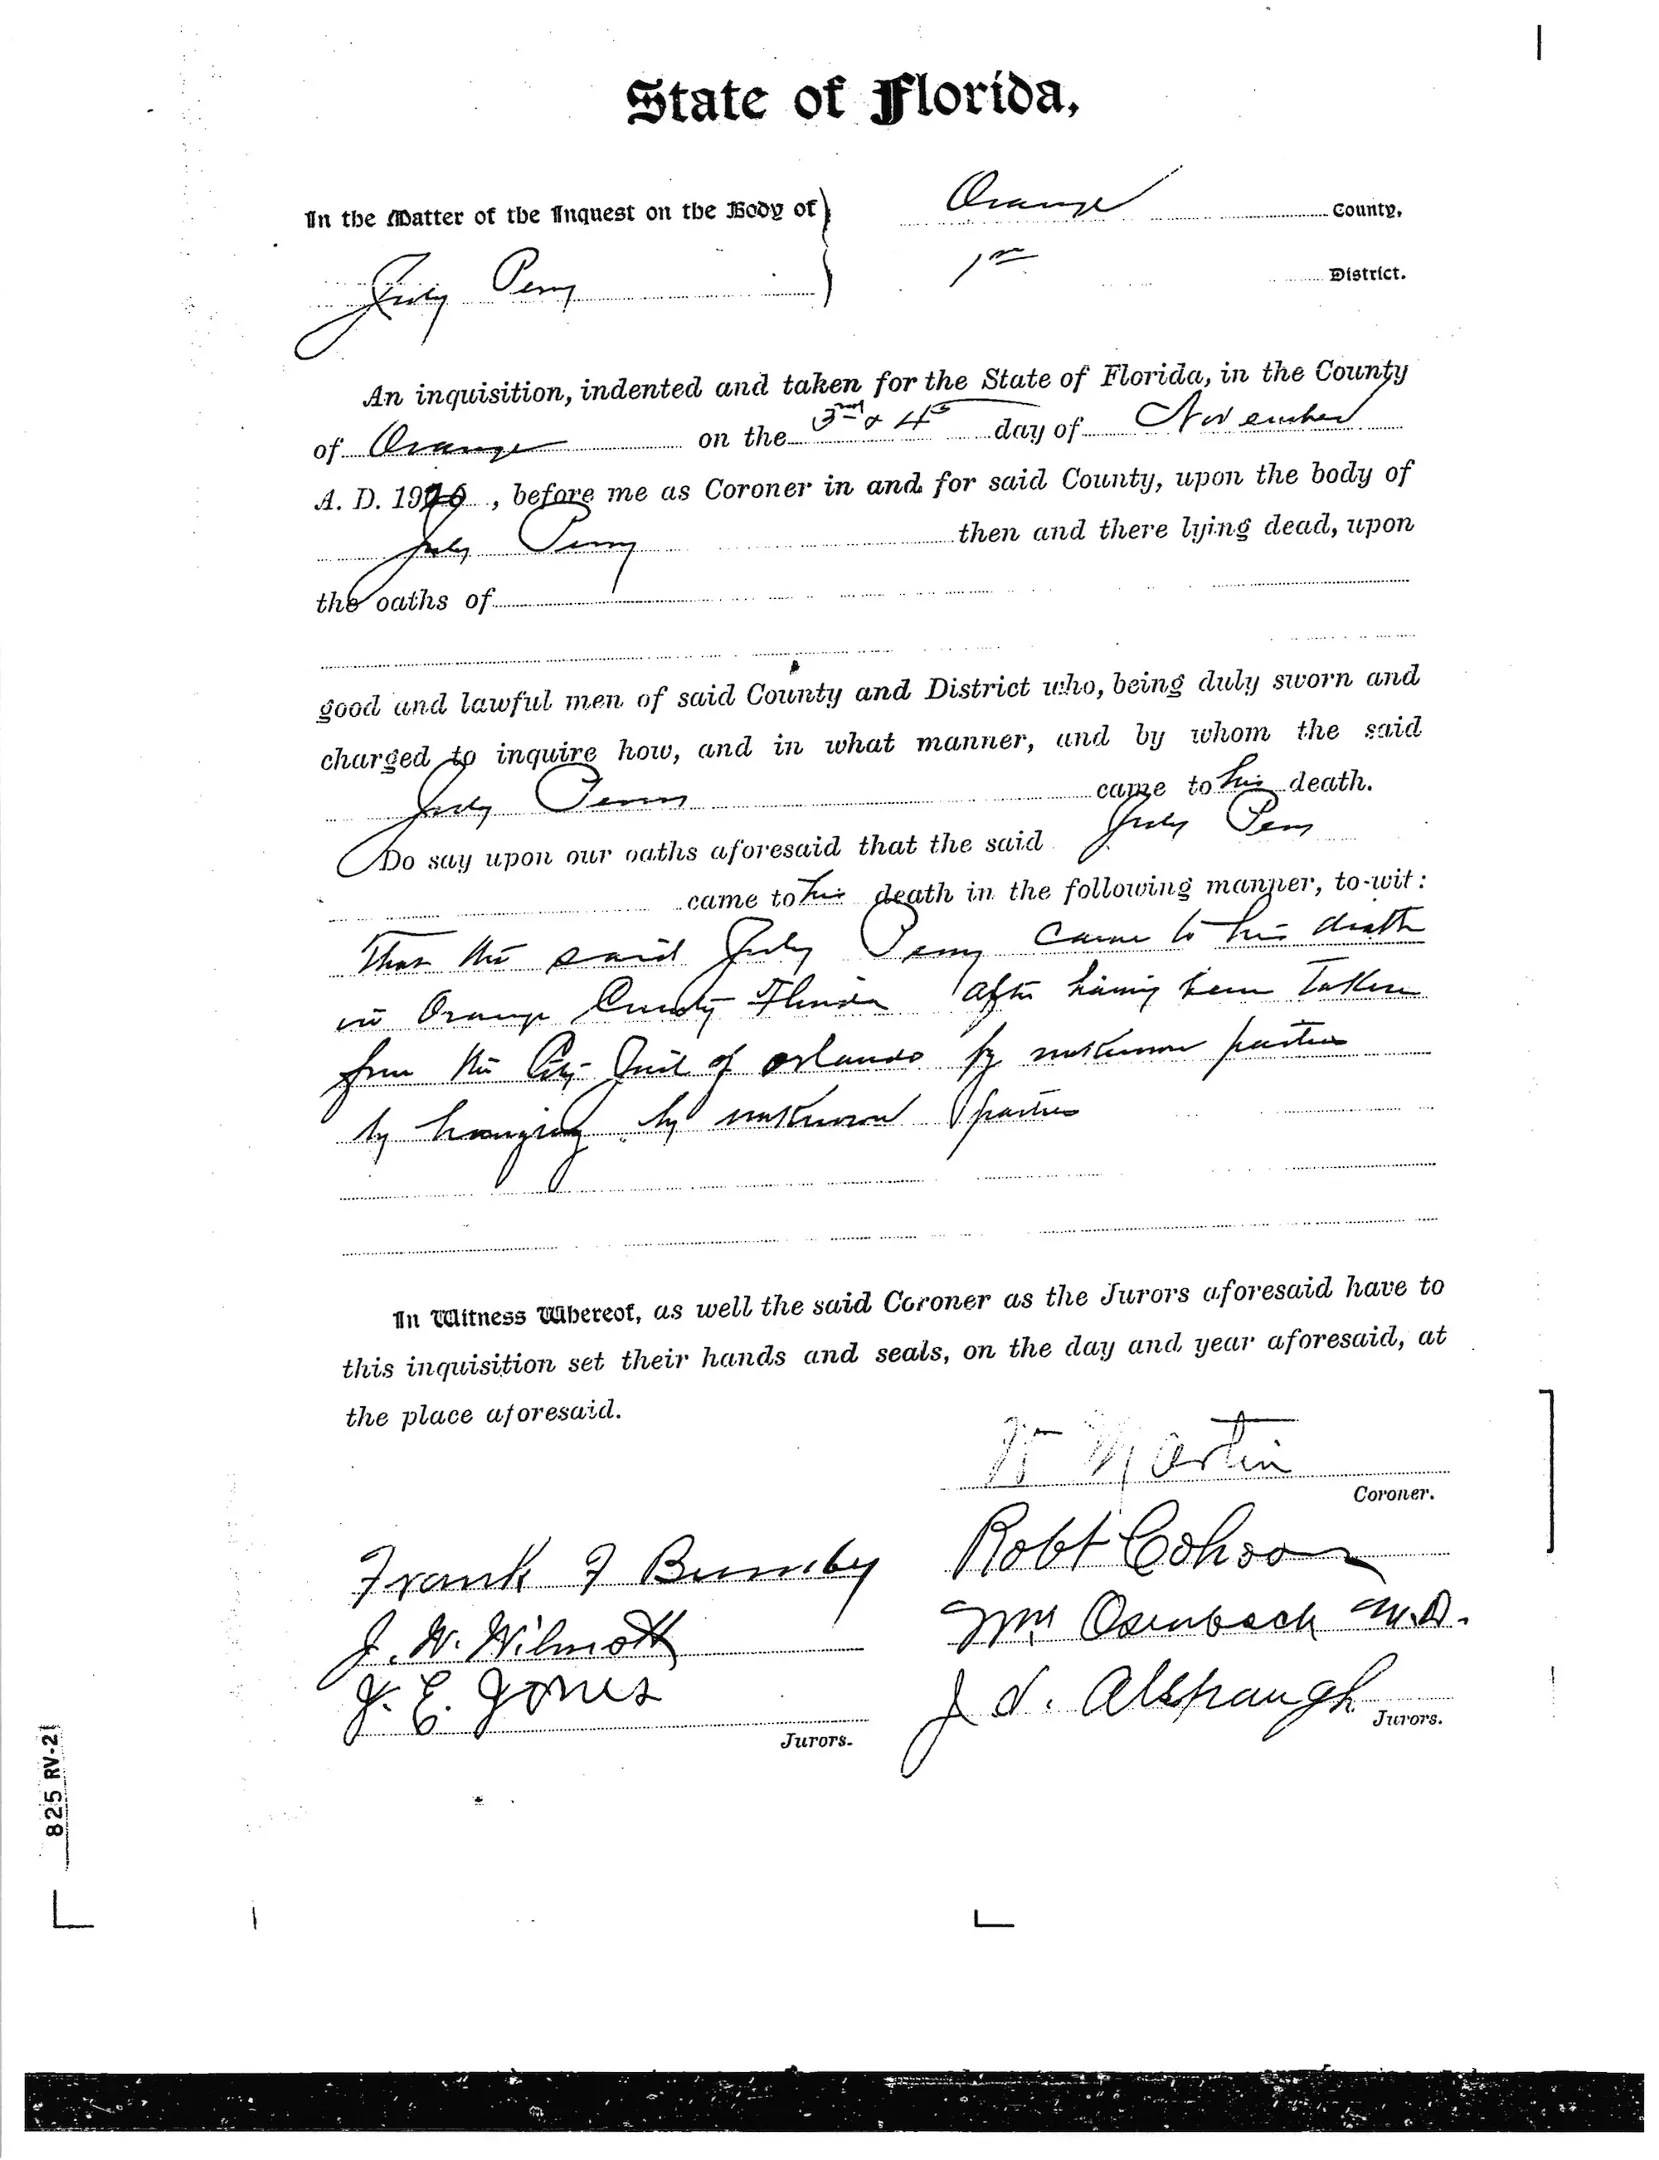 State of Florida,
In the Matter of the Inquest on the Body of
July Perry
Orange County,
1st District.
An inquisition, indented and taken for the State of Florida, in the County
of Orange on the 3rd & 4th day of November
A. D. 1920, before me as Coroner in and for said County, upon the body of
July Perry then and there lying dead, upon
the oaths of
good and lawful men of said County and District who, being duly sworn and
charged to inquire how, and in what manner, and by whom the said
July Perry came to his death.
Do say upon our oaths aforesaid that the said July Perry
came to his death in the following manner, to-wit:
That the said July Perry came to his death
in Orange County Florida after having been taken
from the City Jail of Orlando by unknown parties
by hanging by unknown parties
In Witness Whereof, as well the said Coroner as the Jurors aforesaid have to
this inquisition set their hands and seals, on the day and year aforesaid, at
the place aforesaid.
Martin
Coroner.
Frank F Bumby
Robt Cohoon
J. W. Wilmott
Wm Osenbach M.D.
J. E. Jones
J. D. Alspaugh
Jurors.
Jurors.
825 RV-2